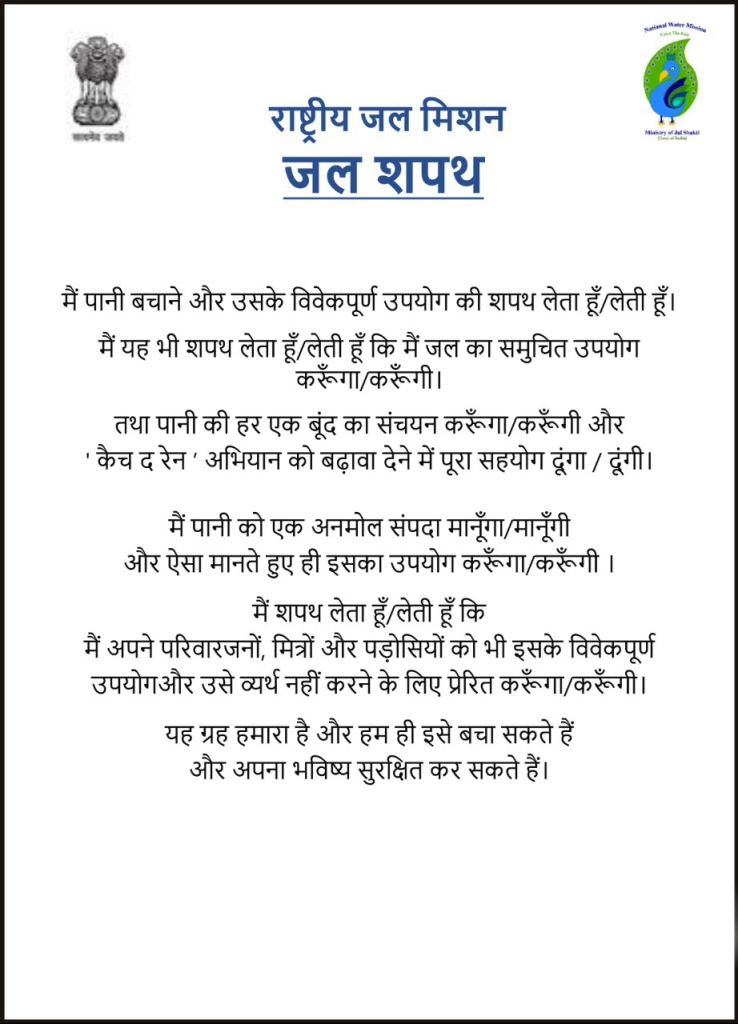 सत्यमेव जयते
National Water Mission
Ministry of Jal Shakti
(Govt. of India)
राष्ट्रीय जल मिशन
जल शपथ
मैं पानी बचाने और उसके विवेकपूर्ण उपयोग की शपथ लेता हूँ/लेती हूँ।
मैं यह भी शपथ लेता हूँ/लेती हूँ कि मैं जल का समुचित उपयोग
करूँगा/करूँगी।
तथा पानी की हर एक बूंद का संचयन करूँगा/करूँगी और
' कैच द रेन ’ अभियान को बढ़ावा देने में पूरा सहयोग दूंगा / दूंगी।
मैं पानी को एक अनमोल संपदा मानूँगा/मानूँगी
और ऐसा मानते हुए ही इसका उपयोग करूँगा/करूँगी ।
मैं शपथ लेता हूँ/लेती हूँ कि
मैं अपने परिवारजनों, मित्रों और पड़ोसियों को भी इसके विवेकपूर्ण
उपयोगऔर उसे व्यर्थ नहीं करने के लिए प्रेरित करूँगा/करूँगी।
यह ग्रह हमारा है और हम ही इसे बचा सकते हैं
और अपना भविष्य सुरक्षित कर सकते हैं।